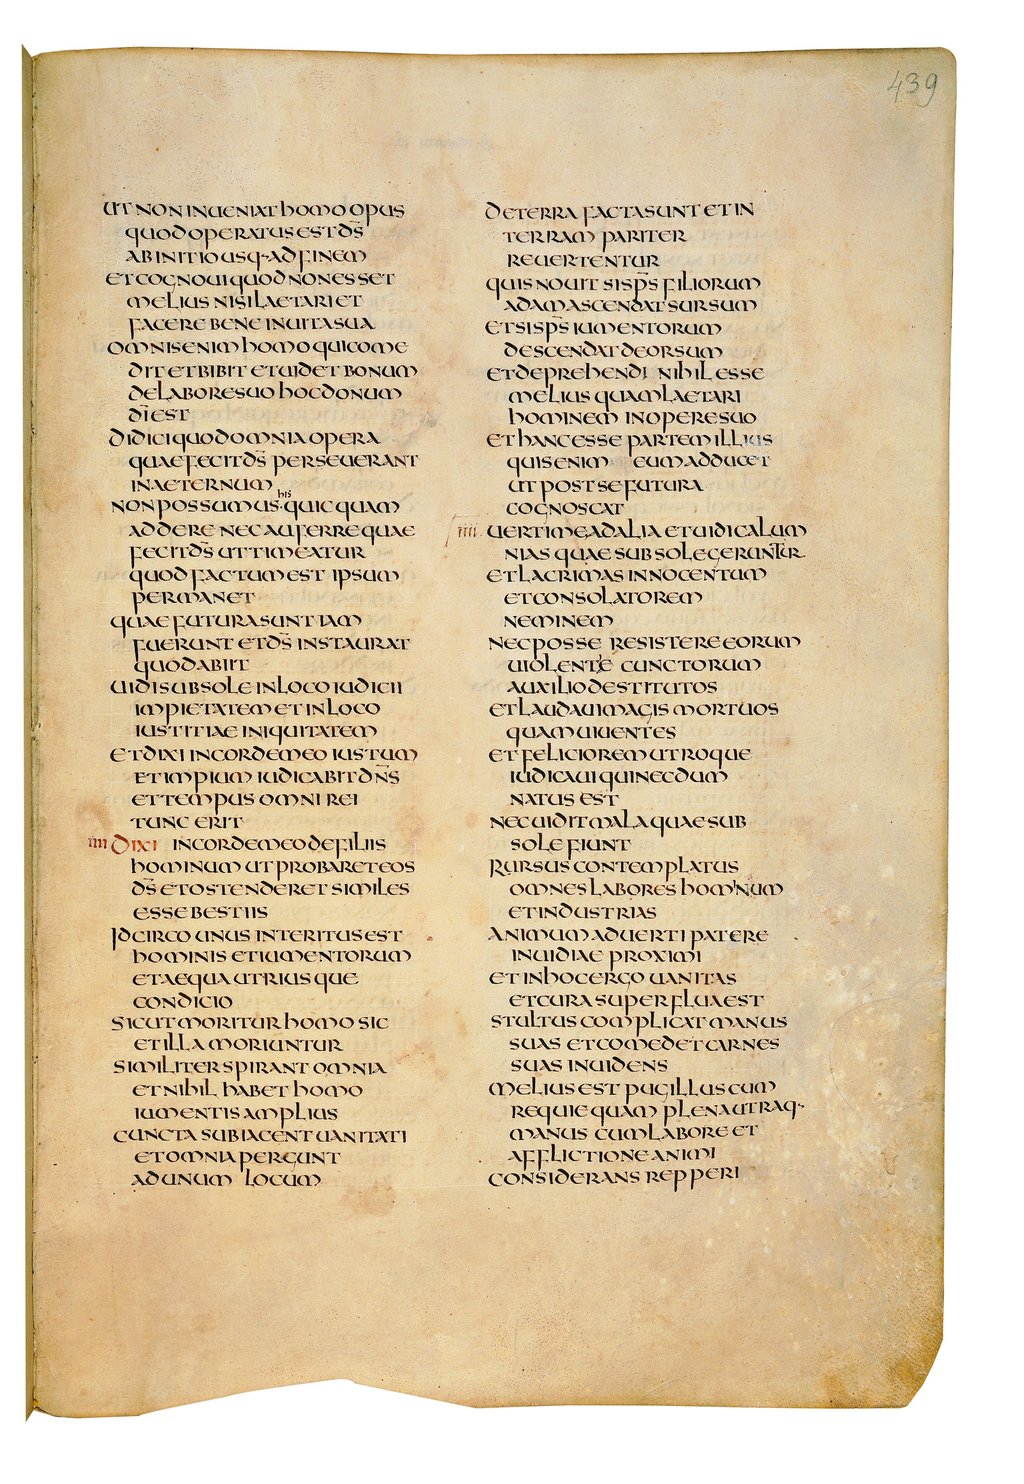 439
UT NON INUENIAT HOMO OPUS
QUOD OPERATUS EST D̄S
AB INITIO USQ· AD FINEM
ET COGNOUI QUOD NON ESSET
MELIUS NISI LAETARI ET
FACERE BENE IN UITA SUA
OMNIS ENIM HOMO QUI COME
DIT ET BIBIT ET UIDET BONUM
DE LABORE SUO HOC DONUM
D̄I EST
DIDICI QUOD OMNIA OPERA
QUAE FECIT D̄S PERSEUERANT
IN AETERNUM
NON POSSUMUS· HIS QUICQUAM
ADDERE NEC AUFERRE QUAE
FECIT D̄S UT TIMEATUR
QUOD FACTUM EST IPSUM
PERMANET
QUAE FUTURA SUNT IAM
FUERUNT ET D̄S INSTAURAT
QUOD ABIIT
UIDI SUB SOLE IN LOCO IUDICII
IMPIETATEM ET IN LOCO
IUSTITIAE INIQUITATEM
ET DIXI IN CORDE MEO IUSTUM
ET IMPIUM IUDICABIT D̄N̄S
ET TEMPUS OMNI REI
TUNC ERIT
IIII DIXI IN CORDE MEO DE FILIIS
HOMINUM UT PROBARET EOS
D̄S ET OSTENDERET SIMILES
ESSE BESTIIS
IDCIRCO UNUS INTERITUS EST
HOMINIS ET IUMENTORUM
ET AEQUA UTRIUSQUE
CONDICIO
SICUT MORITUR HOMO SIC
ET ILLA MORIUNTUR
SIMILITER SPIRANT OMNIA
ET NIHIL HABET HOMO
IUMENTIS AMPLIUS
CUNCTA SUBIACENT UANITATI
ET OMNIA PERGUNT
AD UNUM LOCUM
DE TERRA FACTA SUNT ET IN
TERRAM PARITER
REUERTENTUR
QUIS NOUIT SI SP̄S FILIORUM
ADAM ASCENDAT SURSUM
ET SI SP̄S IUMENTORUM
DESCENDAT DEORSUM
ET DEPREHENDI NIHIL ESSE
MELIUS QUAM LAETARI
HOMINEM IN OPERE SUO
ET HANC ESSE PARTEM ILLIUS
QUIS ENIM EUM ADDUCET
UT POST SE FUTURA
COGNOSCAT
IIII UERTI ME AD ALIA ET UIDI CALUM
NIAS QUAE SUB SOLE GERUNTUR
ET LACRIMAS INNOCENTUM
ET CONSOLATOREM
NEMINEM
NEC POSSE RESISTERE EORUM
UIOLENTIE CUNCTORUM
AUXILIO DESTITUTOS
ET LAUDAUI MAGIS MORTUOS
QUAM UIUENTES
ET FELICIOREM UTROQUE
IUDICAUI QUI NECDUM
NATUS EST
NEC UIDIT MALA QUAE SUB
SOLE FIUNT
RURSUS CONTEMPLATUS
OMNES LABORES HOMINUM
ET INDUSTRIAS
ANIMUM ADUERTI PATERE
INUIDIAE PROXIMI
ET IN HOC ERGO UANITAS
ET CURA SUPERFLUA EST
STULTUS COMPLICAT MANUS
SUAS ET COMEDET CARNES
SUAS INUIDENS
MELIUS EST PUGILLUS CUM
REQUIE QUAM PLENA UTRAQ·
MANUS CUM LABORE ET
AFFLICTIONE ANIMI
CONSIDERANS REPPERI